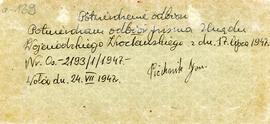 a-169
Potwierdzenie odbioru
Potwierdzam odbiór pisma Urzędu
Wojewódzkiego Wrocławskiego z dn. 17 lipca 1947.
Nr. Oz-2193/1/1947.-
Wołów dn. 24. VII 1947.
Jan.